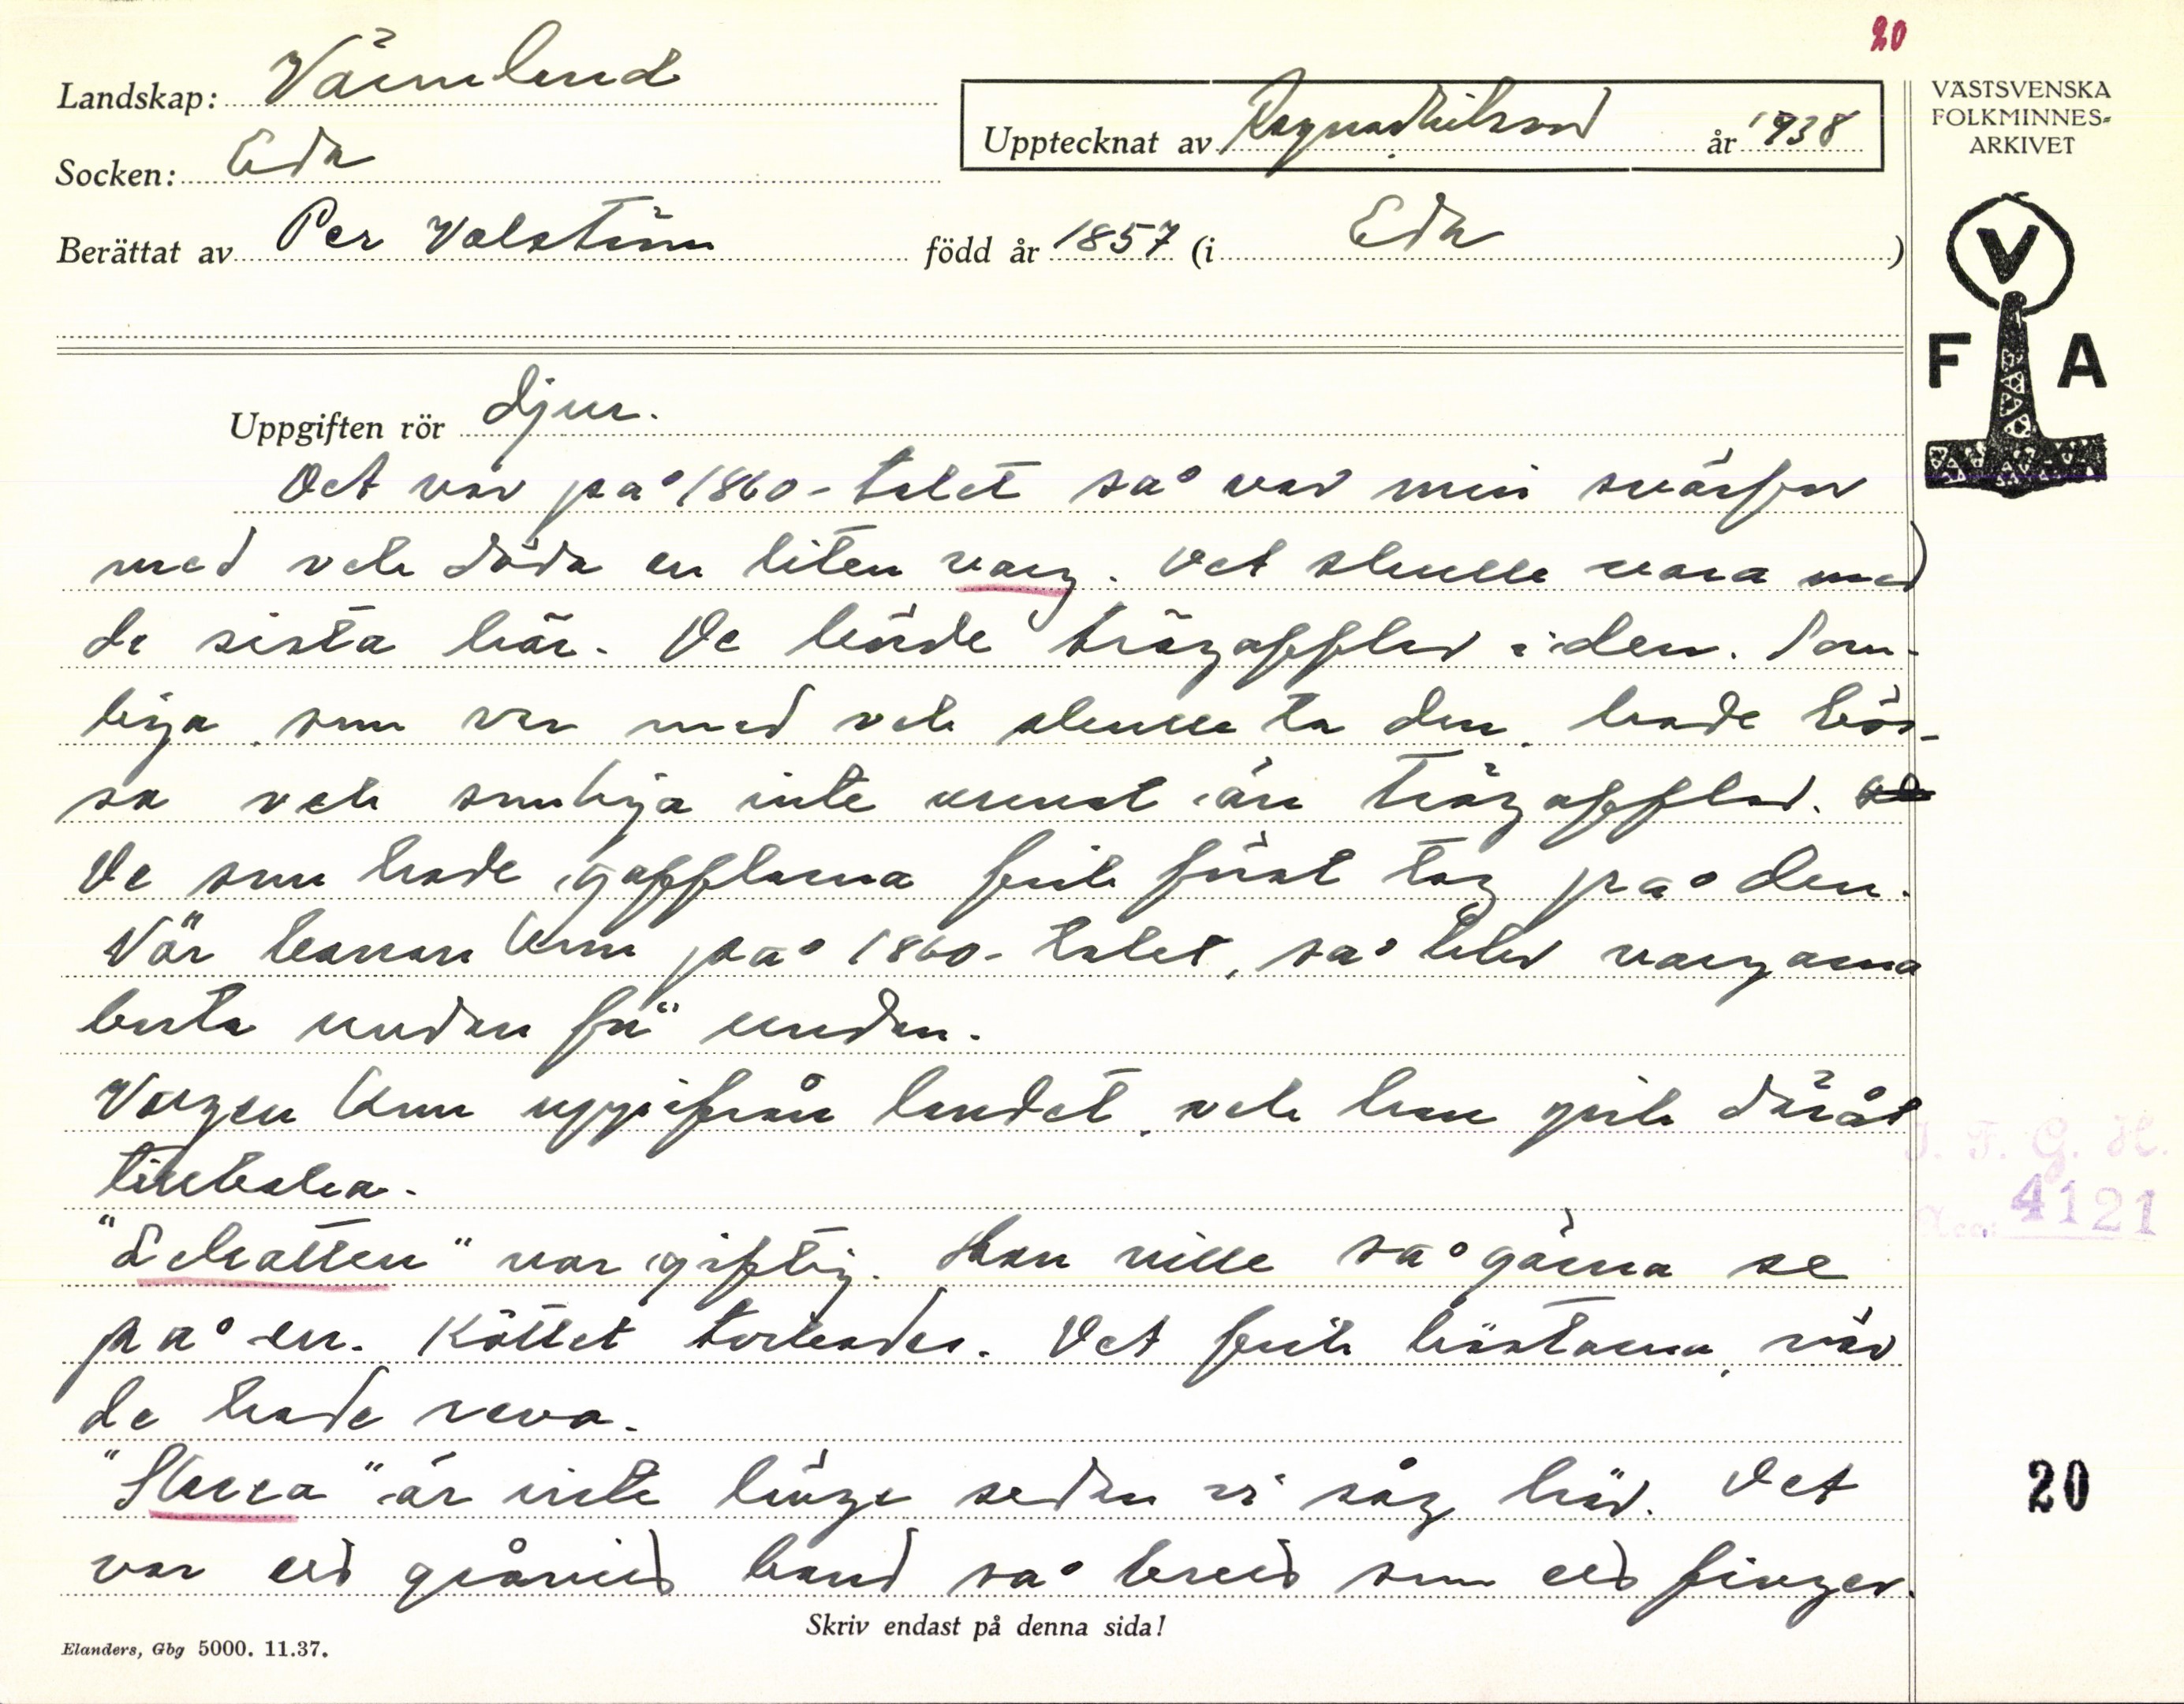 20
Landskap: Värmland
Upptecknat av Ragnar Nilsson år 1938
VÄSTSVENSKA
FOLKMINNES-
ARKIVET
Socken: Eda
Berättat av Per Valström född år 1857 (i Eda)
V
F A
Uppgiften rör djur.
Det var på 1860-talet så var min svärfar
med och döda en liten varg. Det skulle vara med
de sista här. De körde trögafflar i den. Som-
liga som var med och skulle ta den, hade bös-
sa och somliga inte annat än trögafflar.
De som hade gafflarna fick först tag på den.
När banan kom på 1860-talet, så blev vargarna
borta undan för undan.
Vargen kom uppifrån landet, och han gick däråt
tillbaka.
"Lekatten" var giftig. Han ville så gärna se
på en. Köttet torkades. Det fick hästarna, när
de hade reva.
"Harra" är inte länge sedan vi såg här. Det
var ed gråvid band så breid som ed finger.
J. F. G. H.
Acc. 4121
20
Skriv endast på denna sida!
Elanders, Gbg 5000. 11.37.